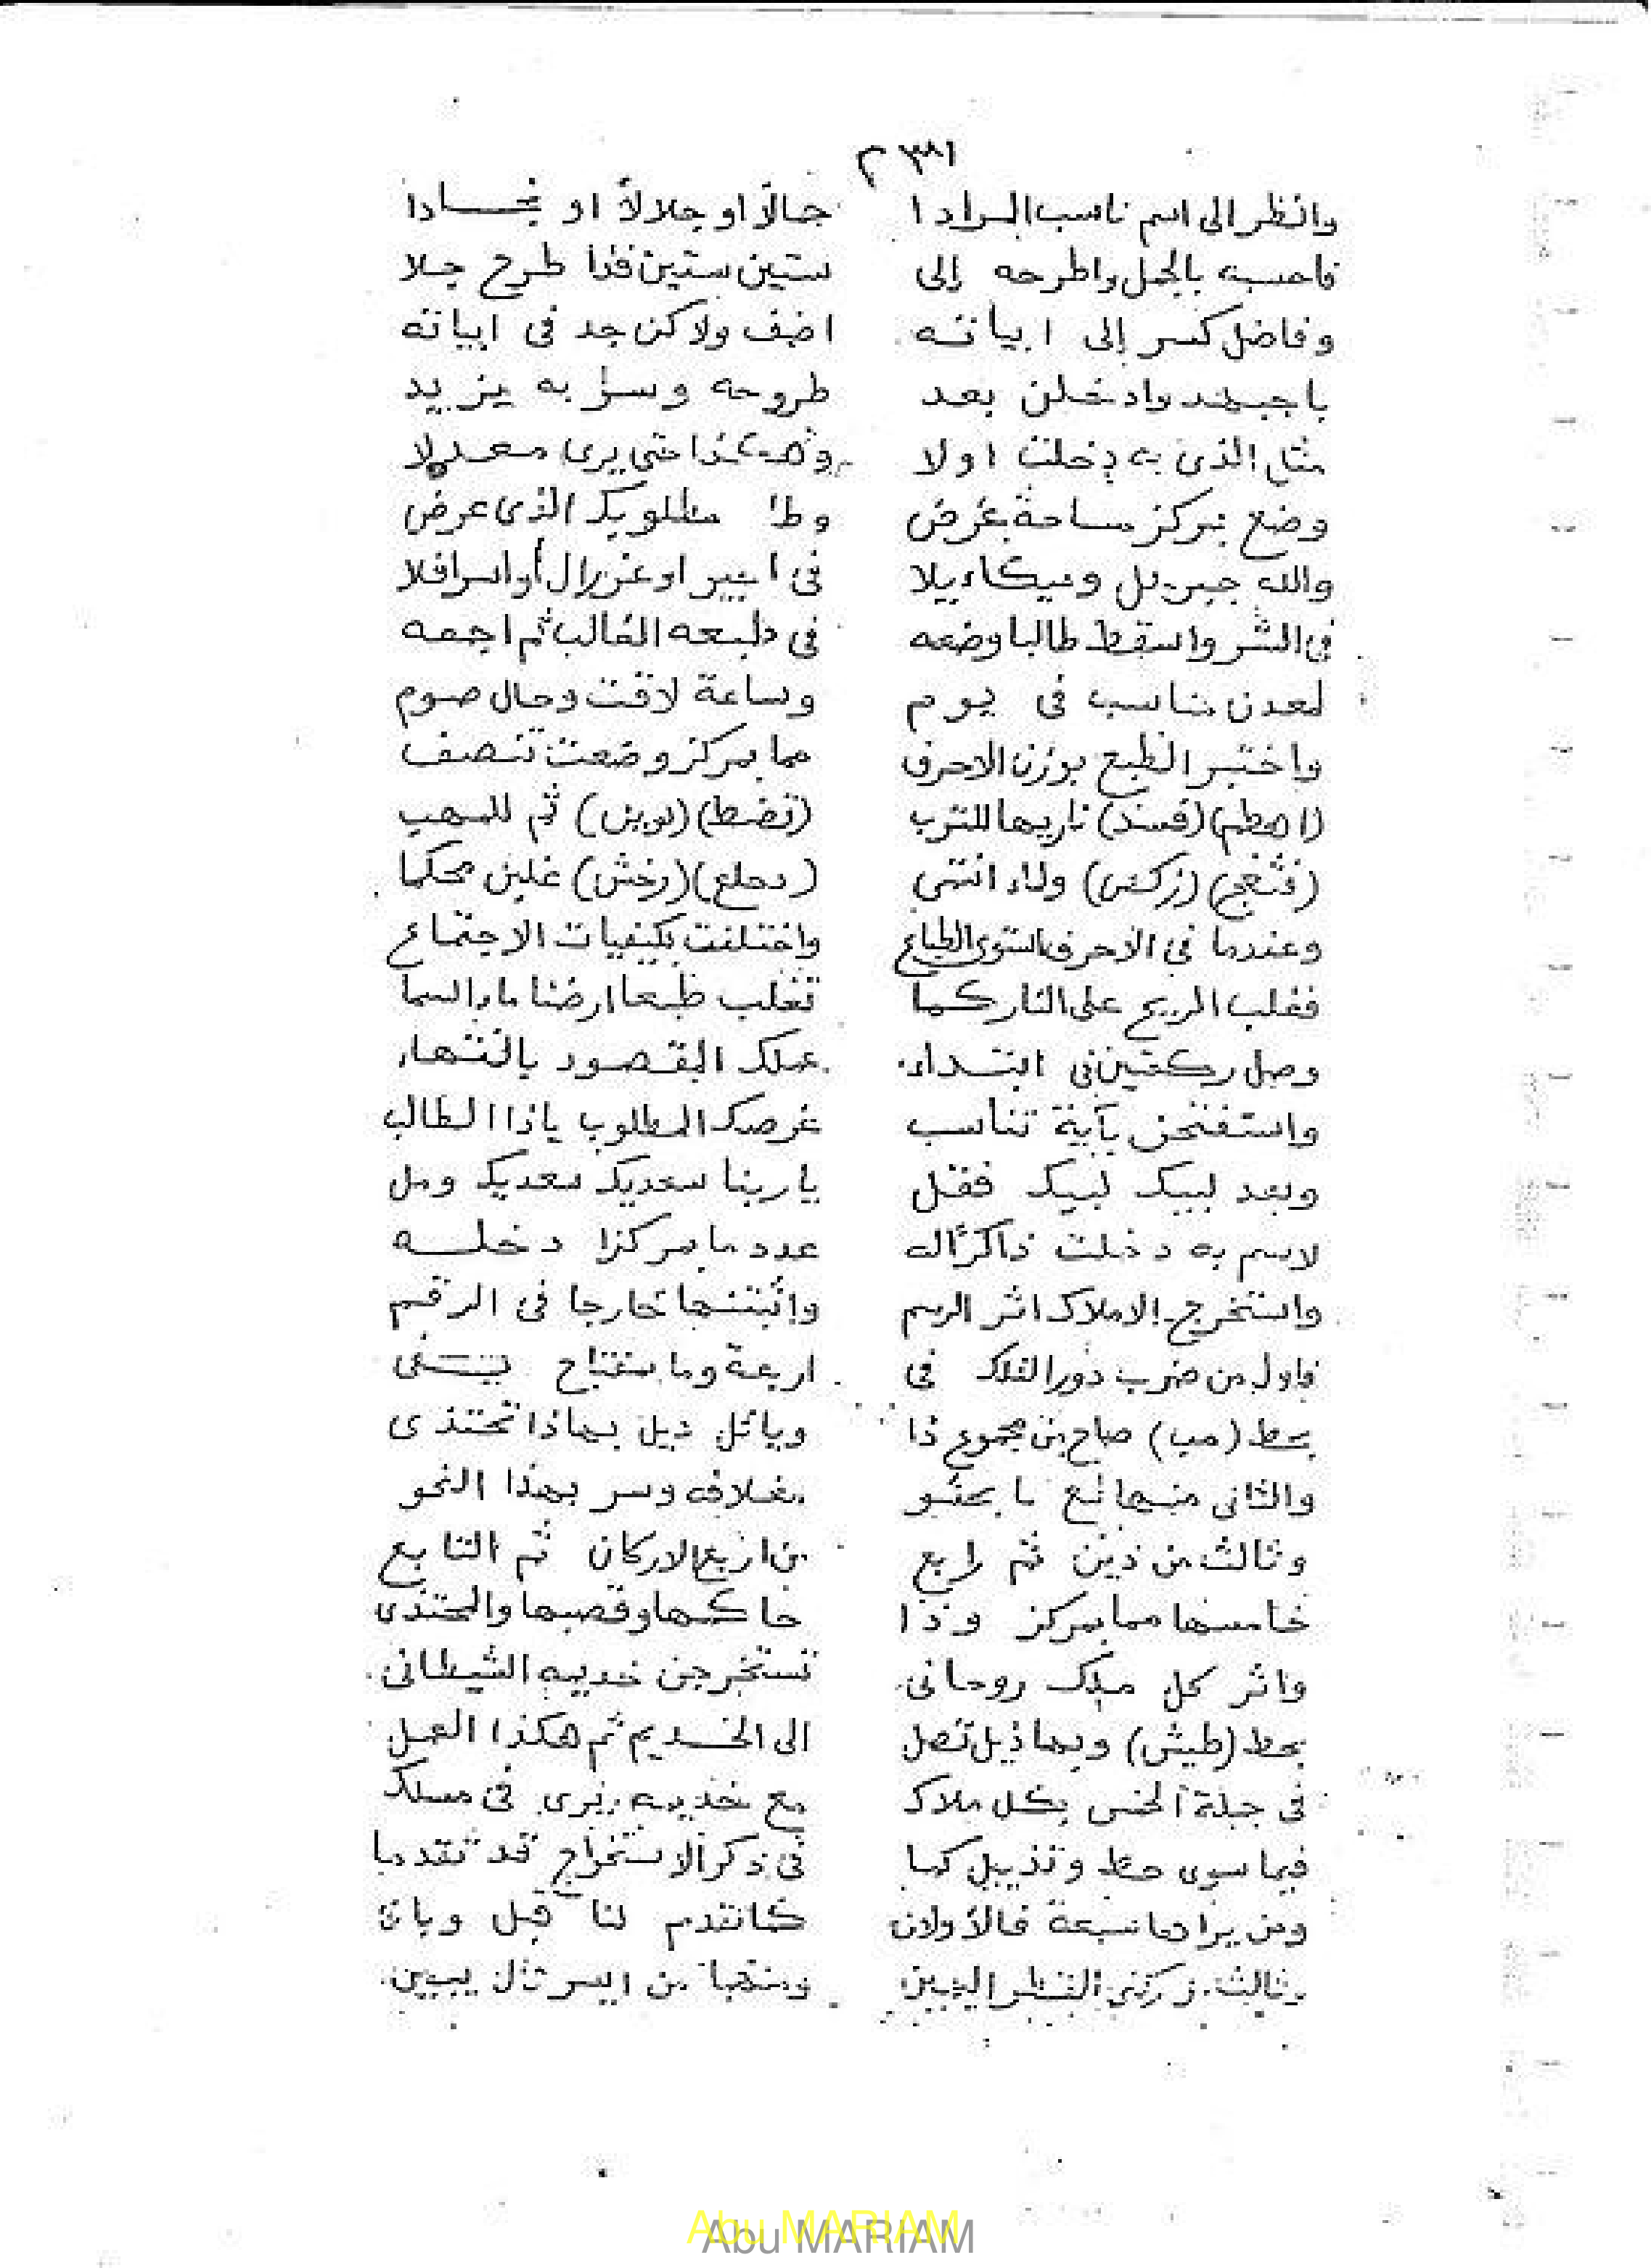 ٣٨١ م
وانظر الى اسم ناسب المرادا جمالاً او جلالاً او
فاحسبه بالجمل واطرحه إلى ستين ستين فذا طرح جلا
وفاضل كسر إلى ابياته اضف ولاكن جد فى ابياته
وادخلن بعد طروحه وسر به يزيد
مثل الذى به دخلت اولا وهكذا حتى يرى معدلا
وضع بمركز مساحة غرض مطلوبك الذى عرض
والله جبريل وميكاءيلا فى الخير او عزرال أو اسرافلا
فى الشر واسقط طالبا وضعه فى طبعه الغالب ثم اجمعه
لمعدن مناسب فى يوم وساعة لاقت وحال صوم
واختبر الطبع بوزن الاحرف مما بمركز وضعت تنصف
(اهطم) (فشذ) ناريها للترب (تضط) (بوين) ثم للمهب
(قثغج) (زكس) ولماء انتمى (دحلع) (رخش) غلبن محكما
وعندما فى الاحرف استوى الطباع واختلفت بكيفيات الاجتماع
فغلب الريح على النار كما تغلب طبعا ارضنا ماء السما
وصل ركعتين فى ابتداء عملك المقصود بانتهاء
واستفتحن بآية تناسب غرضك المطلوب ياذا الطالب
وبعد لبيك لبيك فقل يا ربنا سعديك سعديك وصل
لاسم به دخلت ذاكرًا له عدد ما بمركز دخله
واستخرج الاملاك اثر الرسم واثبتنها خارجا فى الرقم
فاول من ضرب دور الفلك فى اربعة وما بمفتاح يفى
بحط (مب) صاح من مجموع ذا وبائل ذيل بهاذا تحتذى
والثانى منها ضع ما يحتو مغلاقه وسر بهذا النحو
وثالث من ذين ثم رابع من اربع الاركان ثم التابع
خامسها مما بمركز وذا حاكمها وقصبها والمحتذى
واثر كل ملك روحانى تستخرجن خديمه الشيطانى
بحط (طيش) وبها ذيل تصل الى الخديم ثم هكذا العمل
فى جملة الخمس بكل ملاك مع خديمه يرى فى مسلك
فيما سوى حط وتذييل كما فى ذكر الاستخراج قد تقدما
ومن يراها سبعة فالأولان كانتدم لنا قبل وبان
وثالث من ركنى القطر اليمين ومنتها من ايسر تال يبين
Abu MARIAM